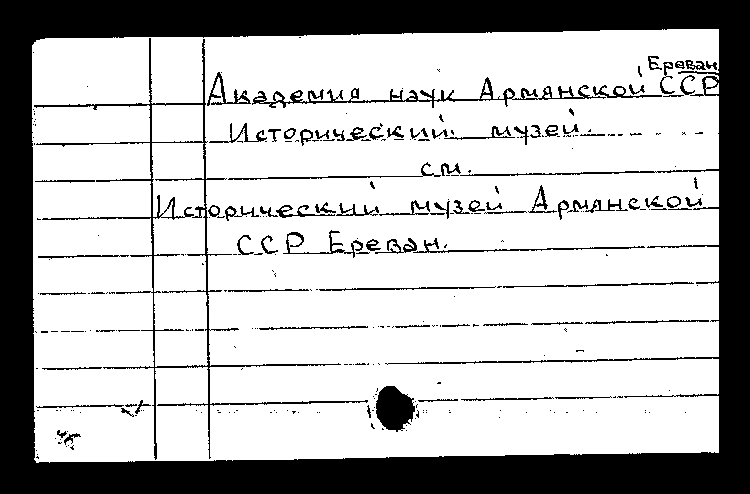 Ереван
Академия наук Армянской ССР
Исторический музей.
см.
Исторический музей Армянской
ССР Ереван.